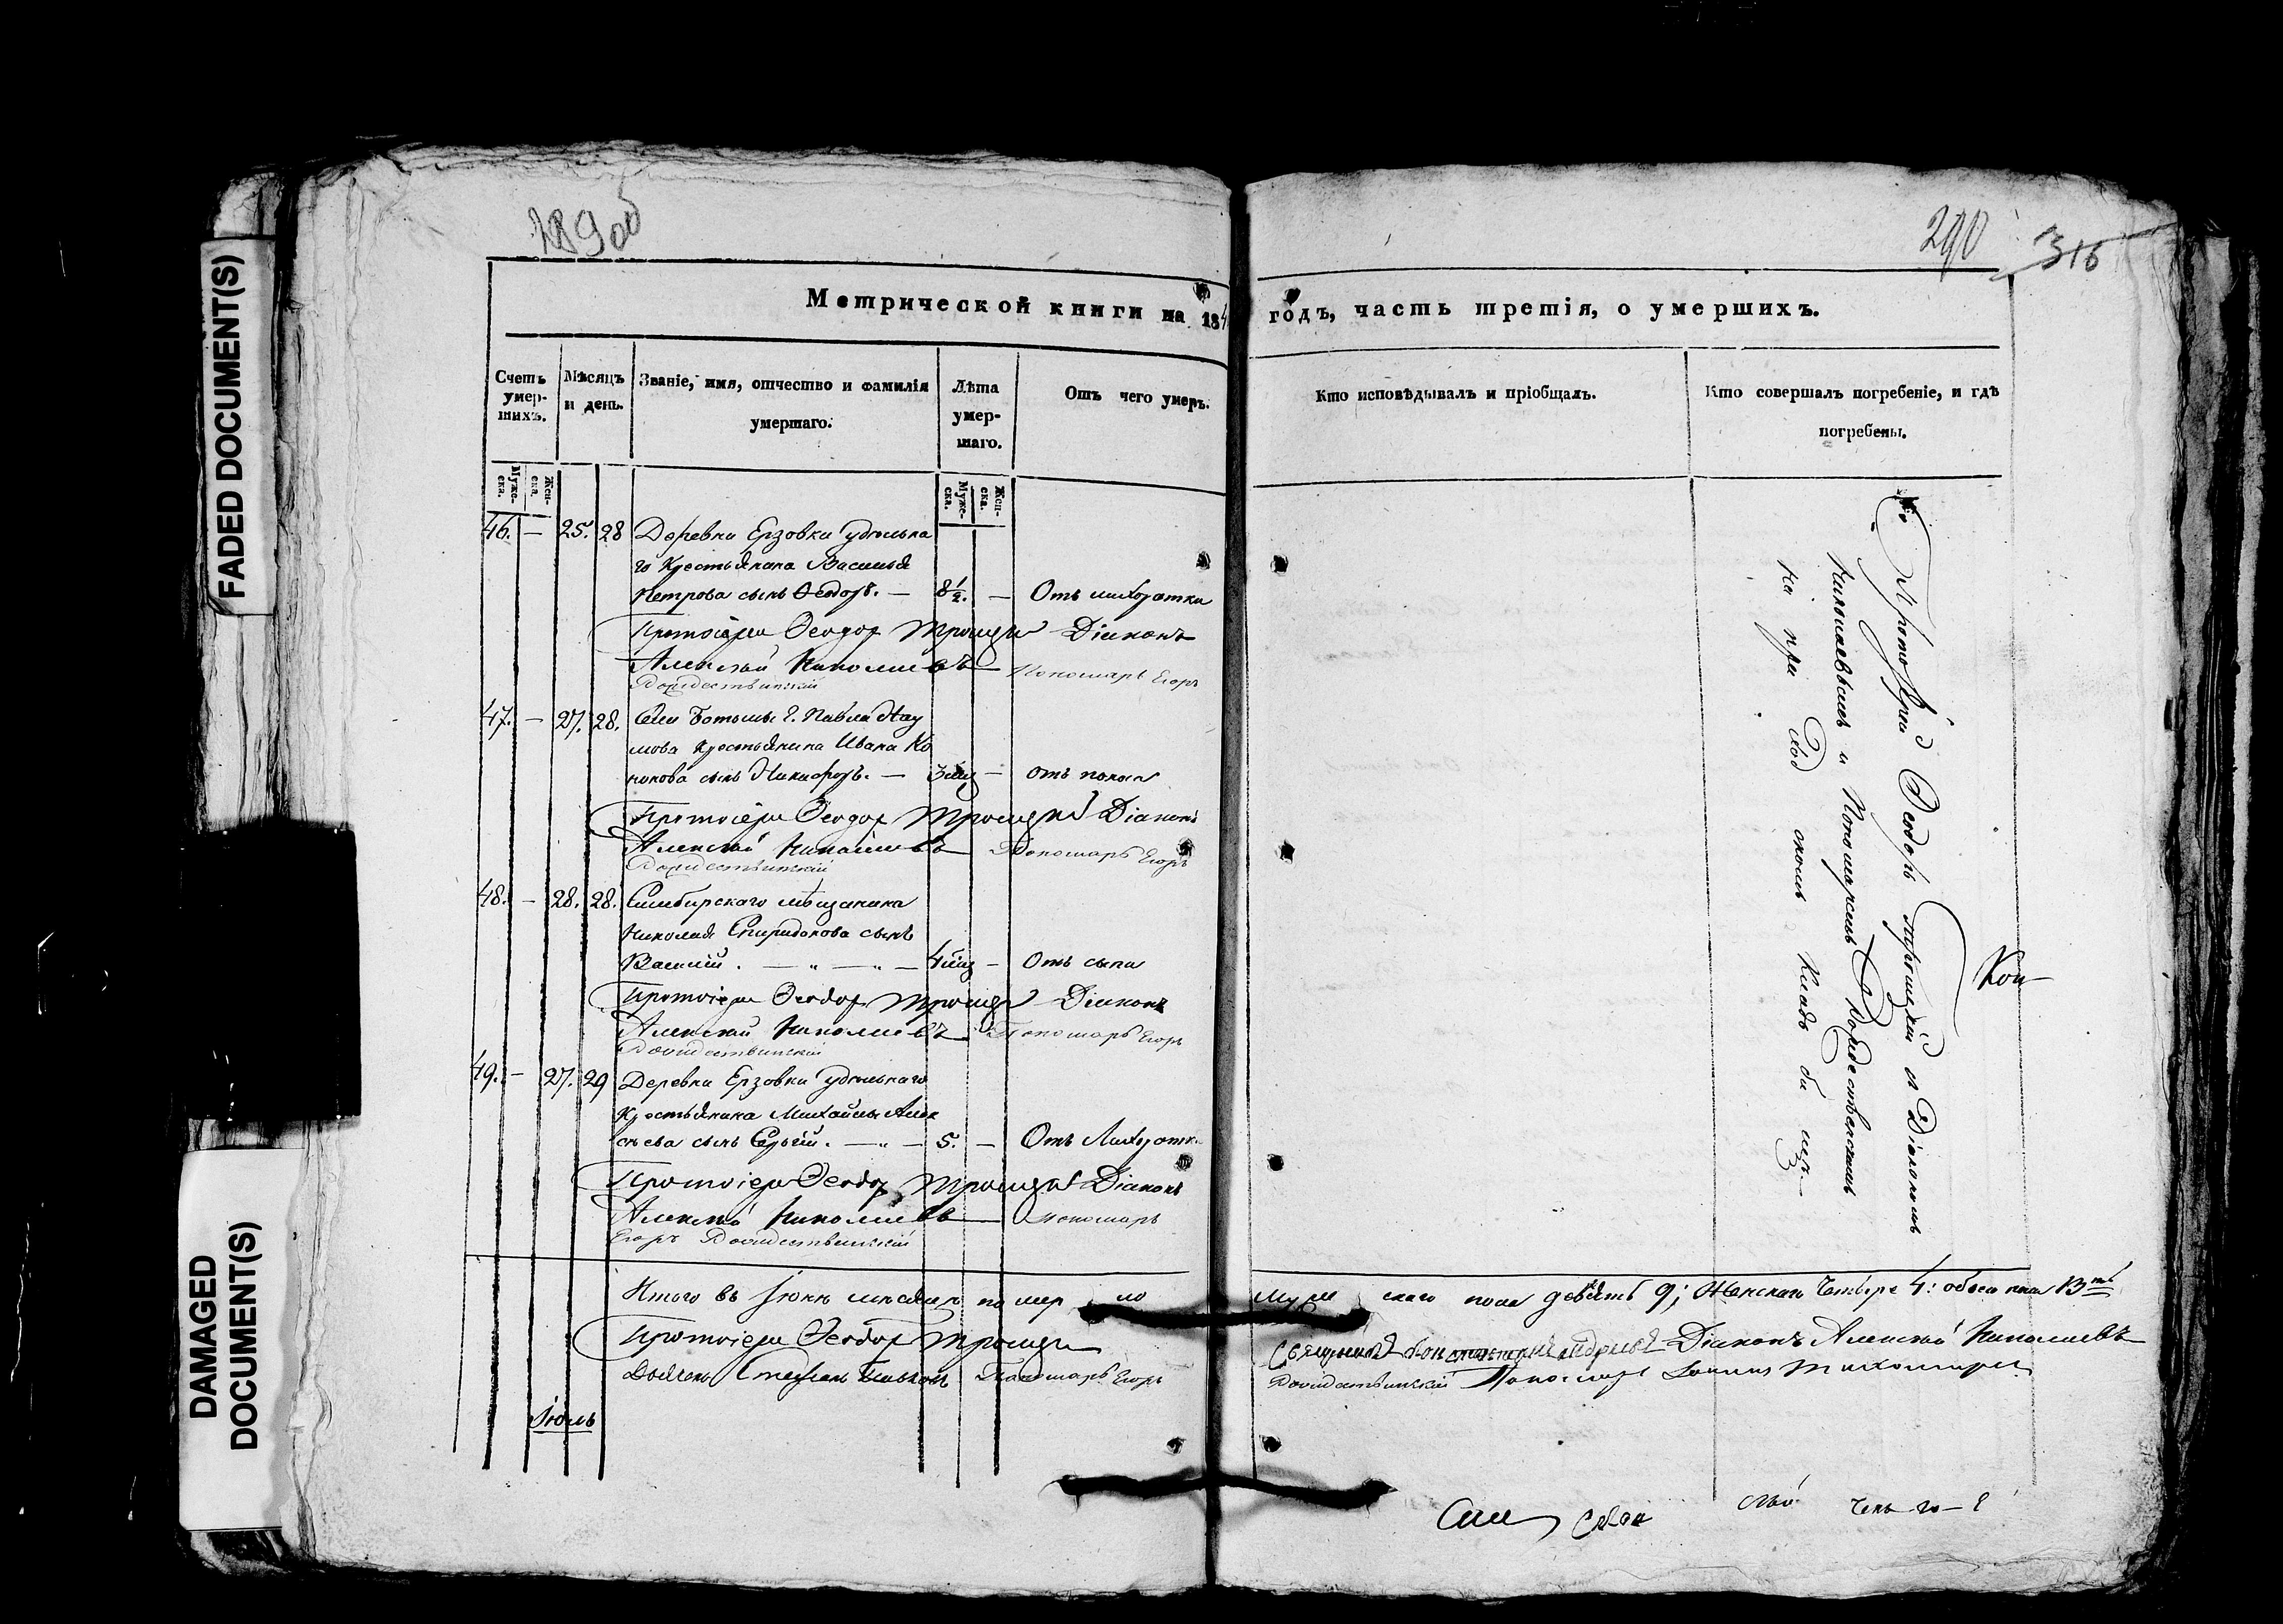 FADED DOCUMENT(S)
DAMAGED DOCUMENT(S)
289 об
290
316
Метрической книги на 184
годъ, часть третія, о умершихъ.
Счетъ умер-шихъ.
Мѣсяцъ и день.
Званіе, имя, отчество и фамилія умершаго.
Лѣта умер-шаго.
Отъ чего умеръ.
Кто исповѣдывалъ и пріобщалъ.
Кто совершалъ погребеніе, и гдѣ погребены.
Муже-ска.
Жен-ска.
Муже-ска.
Жен-ска.
46. — 25. 28 Деревни Ерзовки удѣльна
го Крестьянина Василья
Петрова сынъ Ѳеодоръ. — 8½. —
Протоіерей Ѳеодор Троицкій Діаконъ
Алексѣй Николаевъ Пономарь Егоръ
Рождественскій
47. — 27. 28. Села г. Павла Нау
мова Крестьянина Ивана Ко
нонова сынъ Никифоръ. — 3 мѣц — отъ поноса
Протоіерей Ѳеодор Троицкій Діаконъ
Алексѣй Николаевъ Пономарь Егоръ
Рождественскій
48. — 28. 28. Симбирскаго мѣщанина
Николая Спиридонова сынъ
Василій. — „ — „ — 4 мѣц — Отъ сыпи
Протоіерей Ѳеодор Троицкій Діаконъ
Алексѣй Николаевъ Пономарь Егоръ
Рождественскій
49. — 27. 29 Деревни Ерзовки удѣльнаго
Крестьянина Михайлы Алек
сѣева сынъ Сергѣй. — „ — 5. —
Протоіерей Ѳеодор Троицкій Діаконъ
Алексѣй Николаевъ Пономарь
Егоръ Рождественскій
Протоіерей Ѳеодоръ Троицкій съ Діакономъ
Николаевымъ и Пономаремъ Рождественскимъ
на при ход скомъ Кладбищѣ
Кон
Итого въ Іюнѣ мѣсяцѣ померло Мужескаго пола девять 9; Женскаго Четыре 4: обоего пола 13ть
Протоіерей Ѳеодор Троицкій Діаконъ Алексѣй Николаевъ
Стефанъ Пономарь Егоръ Рождественскій Пономарь
Іюль